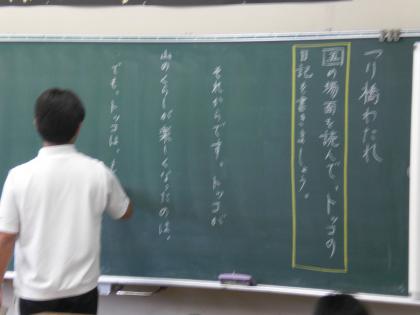 つり橋わたれ
五の場面を読んで、トッコの
日記を書きましょう。
それからです。トッコが
山のくらしが楽しくなったのは、
でも、トッコは、